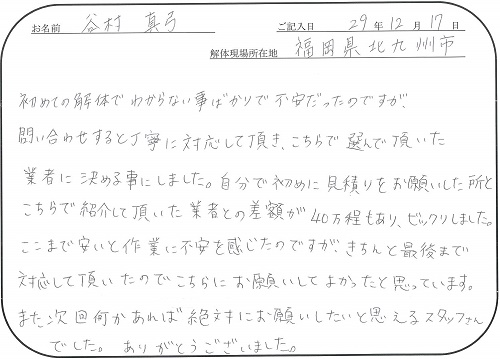 お名前 谷村 真弓 ご記入日 29年12月17日
解体現場所在地 福岡県北九州市
初めての解体でわからない事ばかりで不安だったのですが、
問い合わせすると丁寧に対応して頂き、こちらで選んで頂いた
業者に決める事にしました。自分で初めに見積りをお願いした所と
こちらで紹介して頂いた業者との差額が40万程もあり、ビックリしました。
ここまで安いと作業に不安を感じたのですが、きちんと最後まで
対応して頂いたのでこちらにお願いしてよかったと思っています。
また次回何かあれば絶対にお願いしたいと思えるスタッフさん
でした。ありがとうございました。